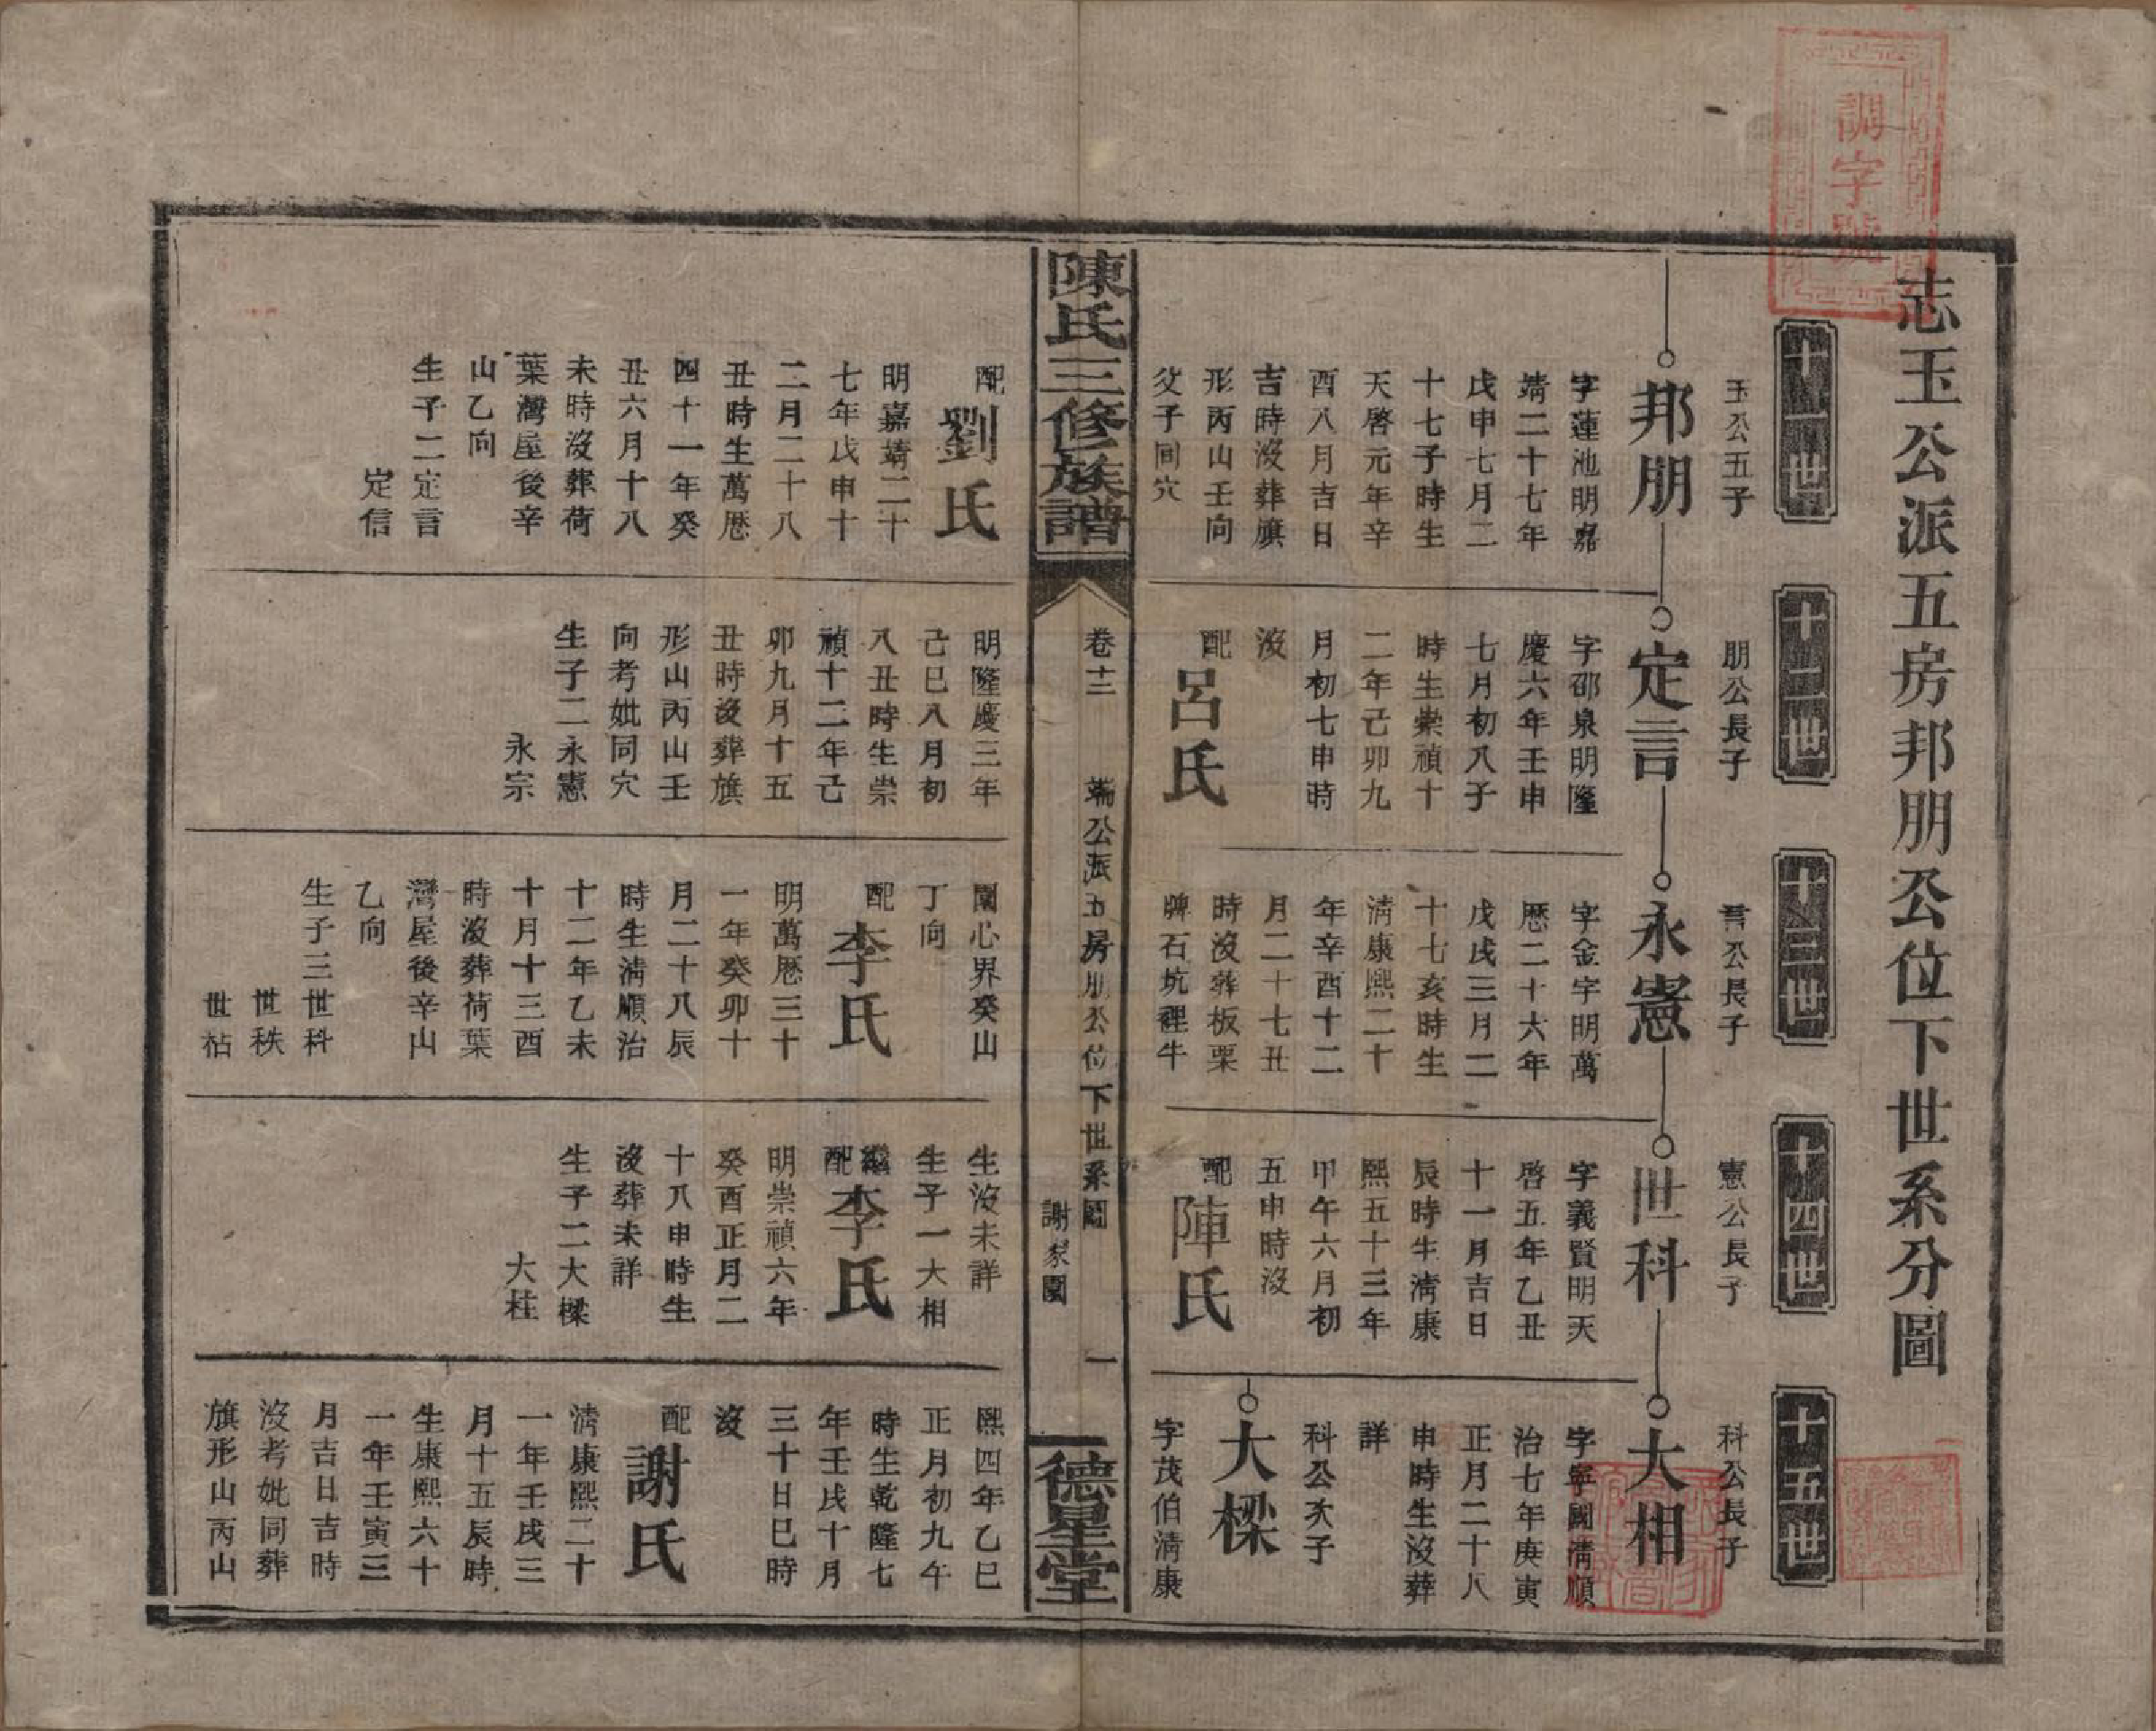 調字號
志玉公派五房邦朋公位下世系分圖
十一世
十二世
十三世
十四世
十五世
玉公五子
邦朋
字蓮池明嘉
靖二十七年
戊申七月二
十七子時生
天啓元年辛
酉八月吉日
吉時沒葬旗
形丙山壬向
父子同穴
配
劉氏
明嘉靖二十
七年戊申十
二月二十八
丑時生萬厯
四十一年癸
丑六月十八
未時沒葬荷
葉灣屋後辛
山乙向
生子二定言
定信
朋公長子
定言
字邵泉明隆
慶六年壬申
七月初八子
時生崇禎十
二年己卯九
月初七申時
沒
配
呂氏
明隆慶三年
己巳八月初
八丑時生崇
禎十二年己
卯九月十五
丑時沒葬旗
形山丙山壬
向考妣同穴
生子二永憲
永宗
言公長子
永憲
字金字明萬
厯二十六年
戊戌三月二
十七亥時生
淸康熙二十
年辛酉十二
月二十七丑
時沒葬板栗
牌石坑裡牛
闌心界癸山
丁向
配
李氏
明萬厯三十
一年癸卯十
月二十八辰
時生淸順治
十二年乙未
十月十三酉
時沒葬荷葉
灣屋後辛山
乙向
生子三世科
世秩
世祜
憲公長子
世科
字義賢明天
啓五年乙丑
十一月吉日
辰時生淸康
熙五十三年
甲午六月初
五申時沒
配
陳氏
生沒未詳
生子一大相
繼配
李氏
明崇禎六年
癸酉正月二
十八申時生
沒葬未詳
生子二大樑
大桂
科公長子
大相
字寧國淸順
治七年庚寅
正月二十八
申時生沒葬
詳
科公次子
大樑
字茂伯淸康
熙四年乙巳
正月初九午
時生乾隆七
年壬戌十月
三十日巳時
沒
配
謝氏
淸康熙二十
一年壬戌三
月十五辰時
生康熙六十
一年壬寅三
月吉日吉時
沒考妣同葬
旗形山丙山
陳氏三修族譜
卷十三
端公派五房朋公位下世系圖
謝家園
一
德星堂